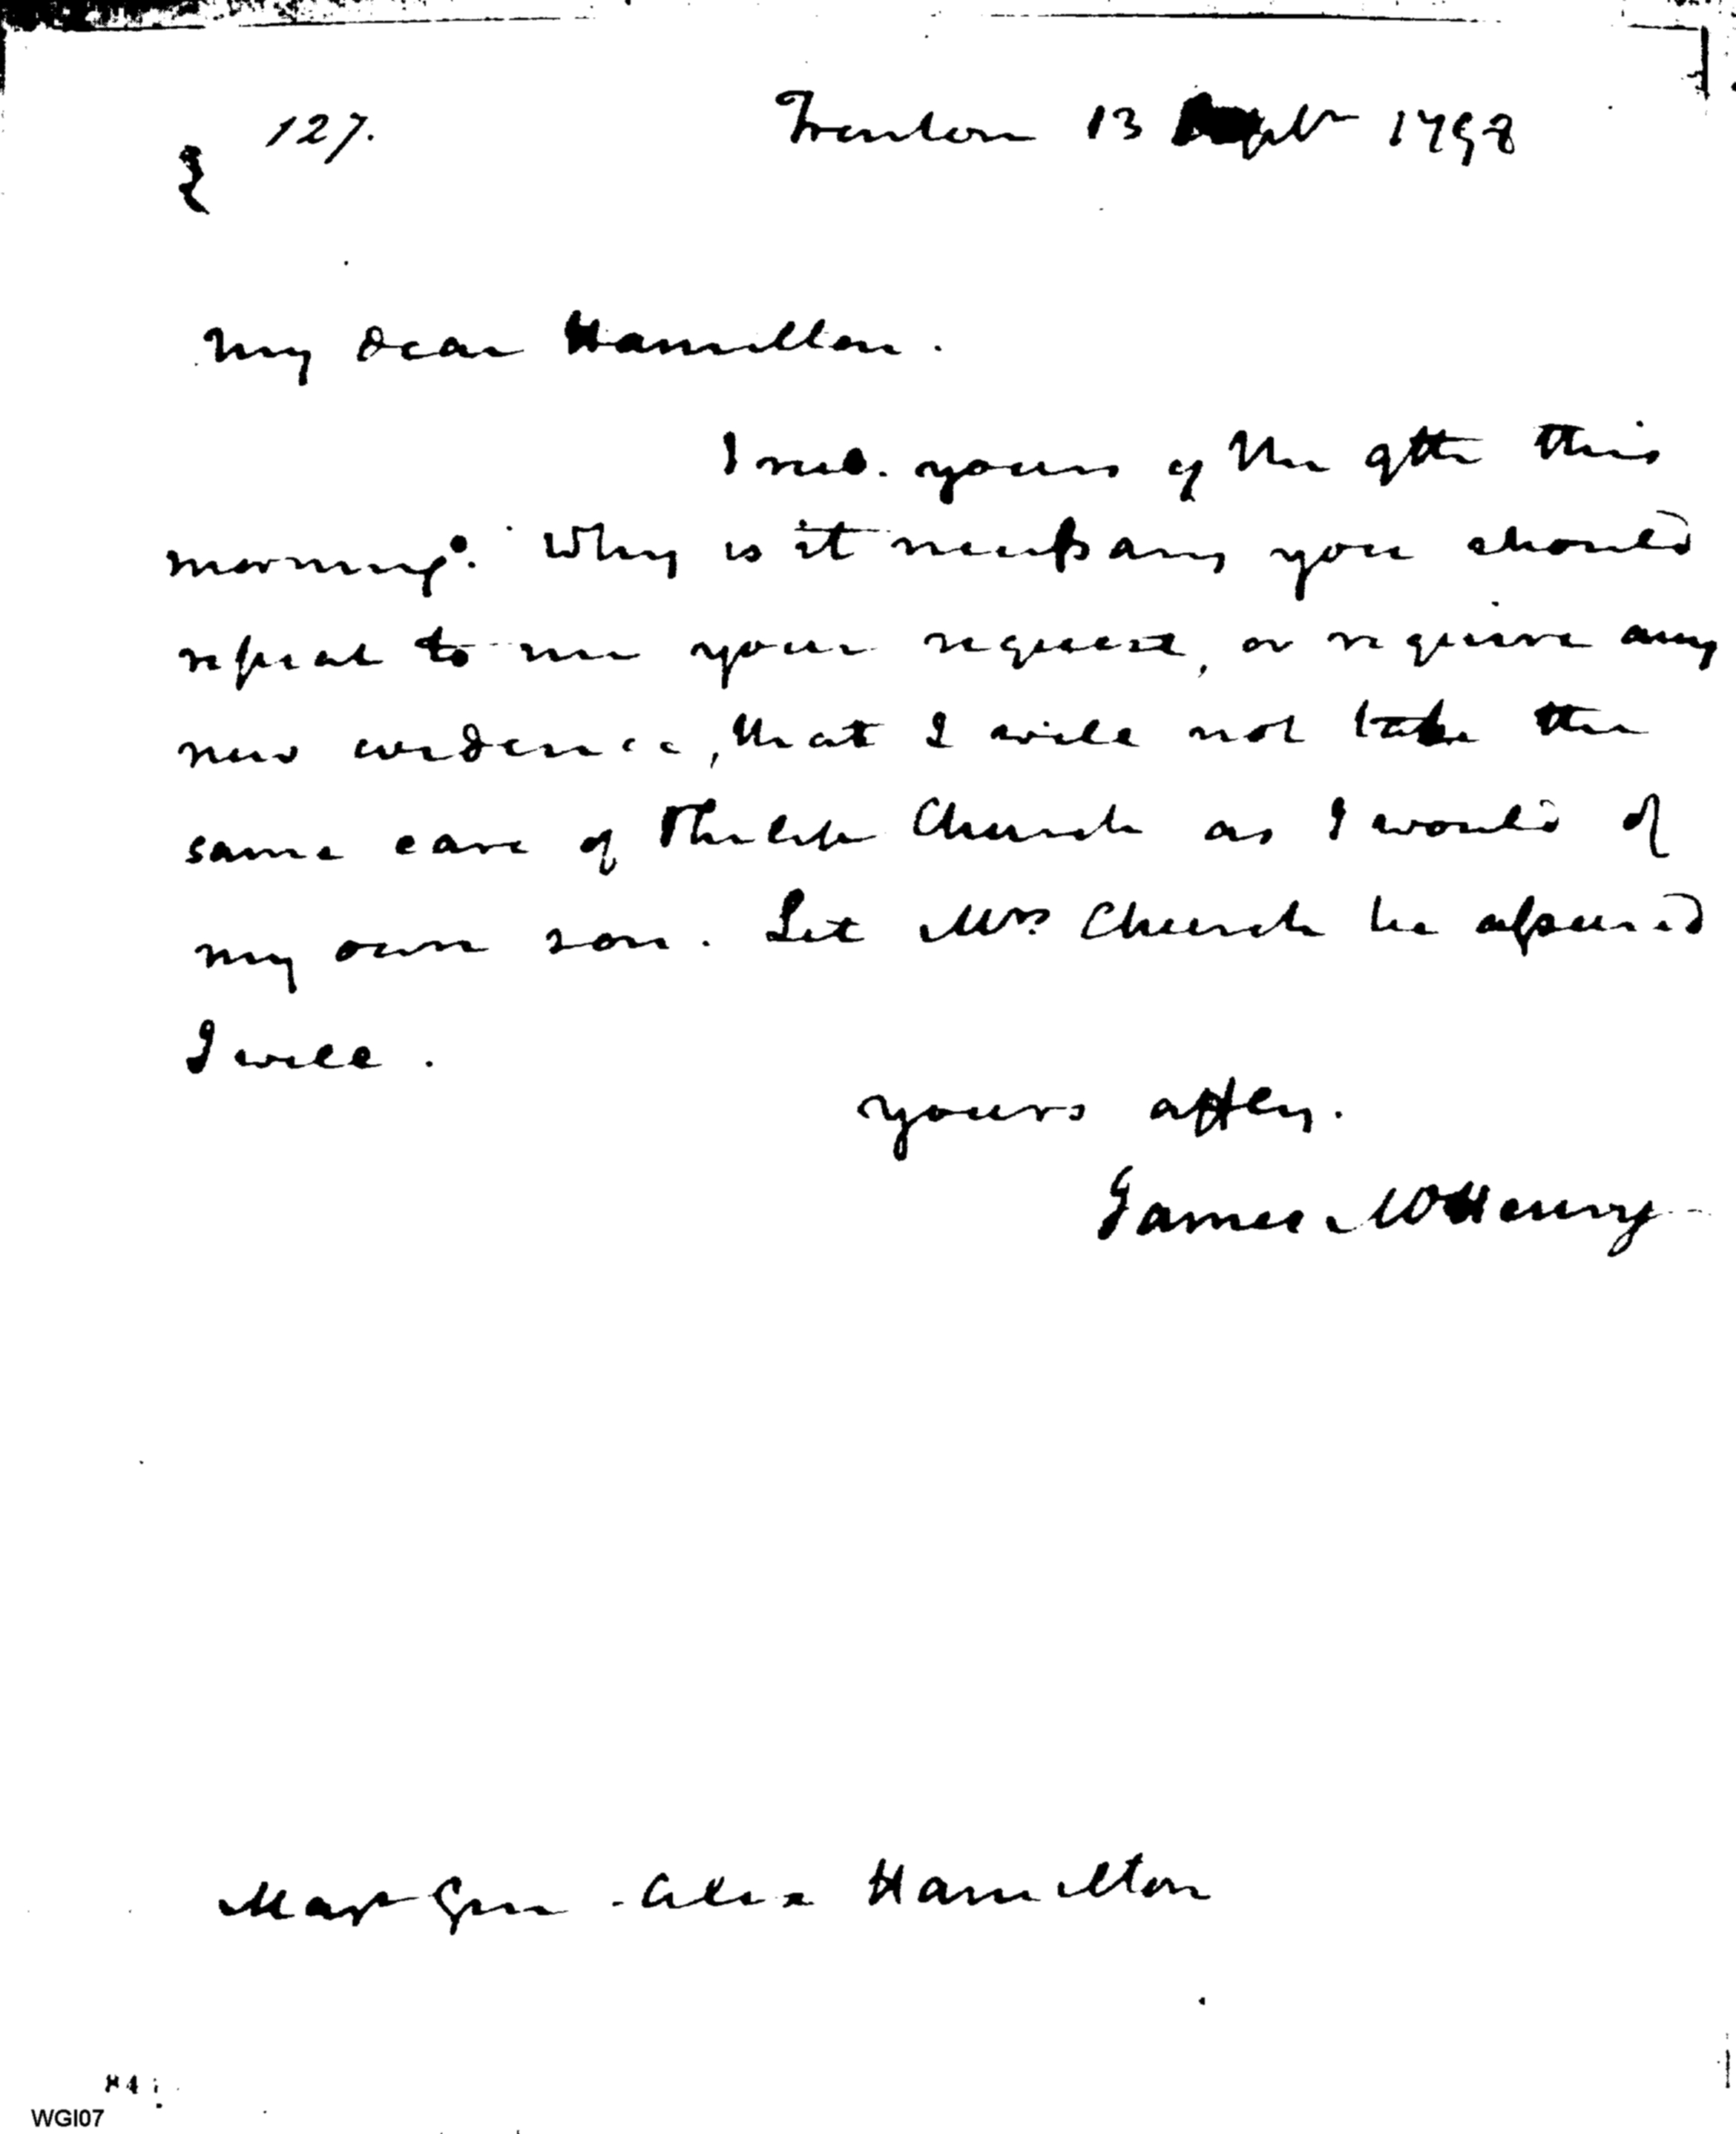 127.
Trenton 13 Septr 1798
My dear Hamilton.
I recd. yours of the 9th this
morning. Why is it necessary you should
repeat to me your request, or require any
new evidence, that I will not take the
same care of Philip Church as I would of
my own son. Let Mrs. Church be assured
I will.
yours affey.
James McHenry
Majr Gen Alex Hamilton
WGI07